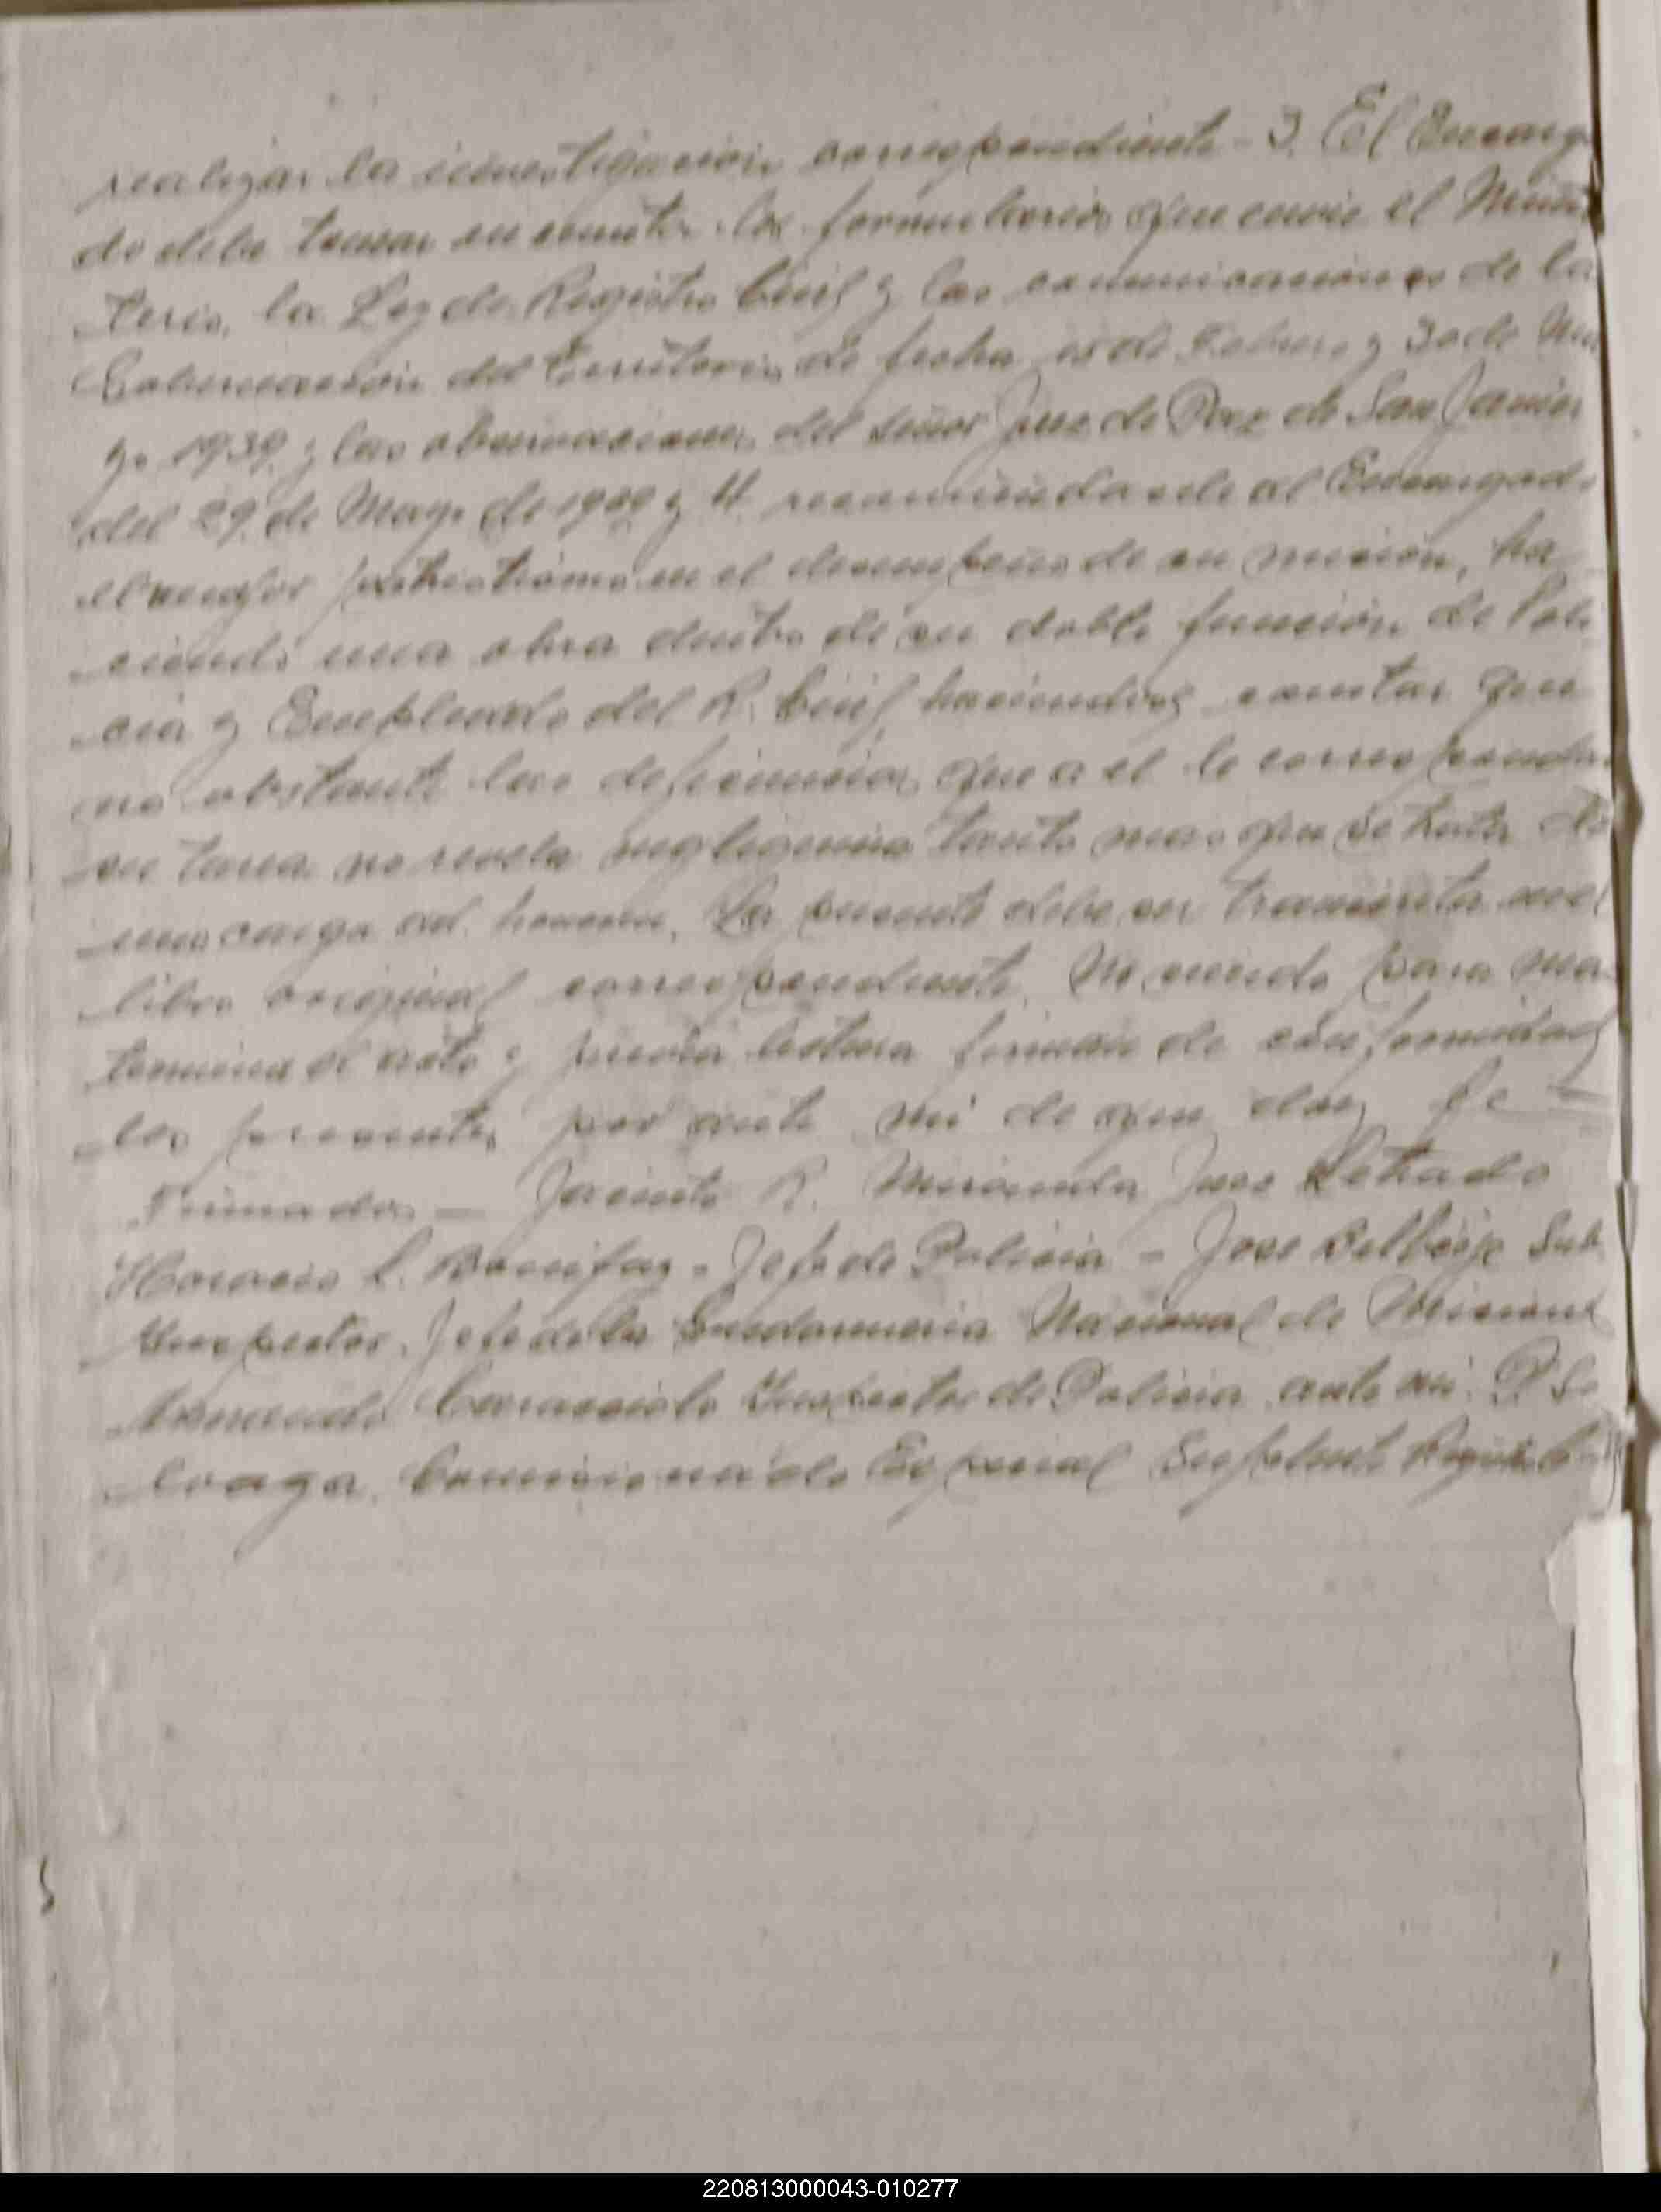 realizar la investigación correspondiente - 3. El Encarga
do debe tomar en cuenta los formularios que envie el Minis
terio, la Ley de Registro Civil y las comunicaciones de la
Gobernación del Territorio de fecha de Febrero y 30 de Ma
yo 1939 y las observaciones del señor Juez de Paz de San Javier
del 29 de Mayo de y 4 recomiendasele al Encargado
el mayor patriotismo en el desempeño de su misión, ha
ciendo una obra dentro de su doble función de Poli
cia y Empleado del R. Civil, haciendose constar que
no obstante las deficiencias que a el le corresponden
su tarea no revela negligencia tanto mas que se trata de
una carga ad honorem. La presente debe ser transcrita en el
libro original correspondiente. No siendo para mas
termina el acto y previa lectura firman de conformidad
los presentes por ante mi de que doy fe
Firmados — Jacinto R. Miranda Juez Letrado
Horacio L. Bonifaz - Jefe de Policia - Jose Sub
Inspector, Jefe de la Gendarmeria Nacional de Misiones
Armando Inspector de Policia ante mi. P. So
loaga, Comisionado Especial Suplente Registro C
220813000043-010277